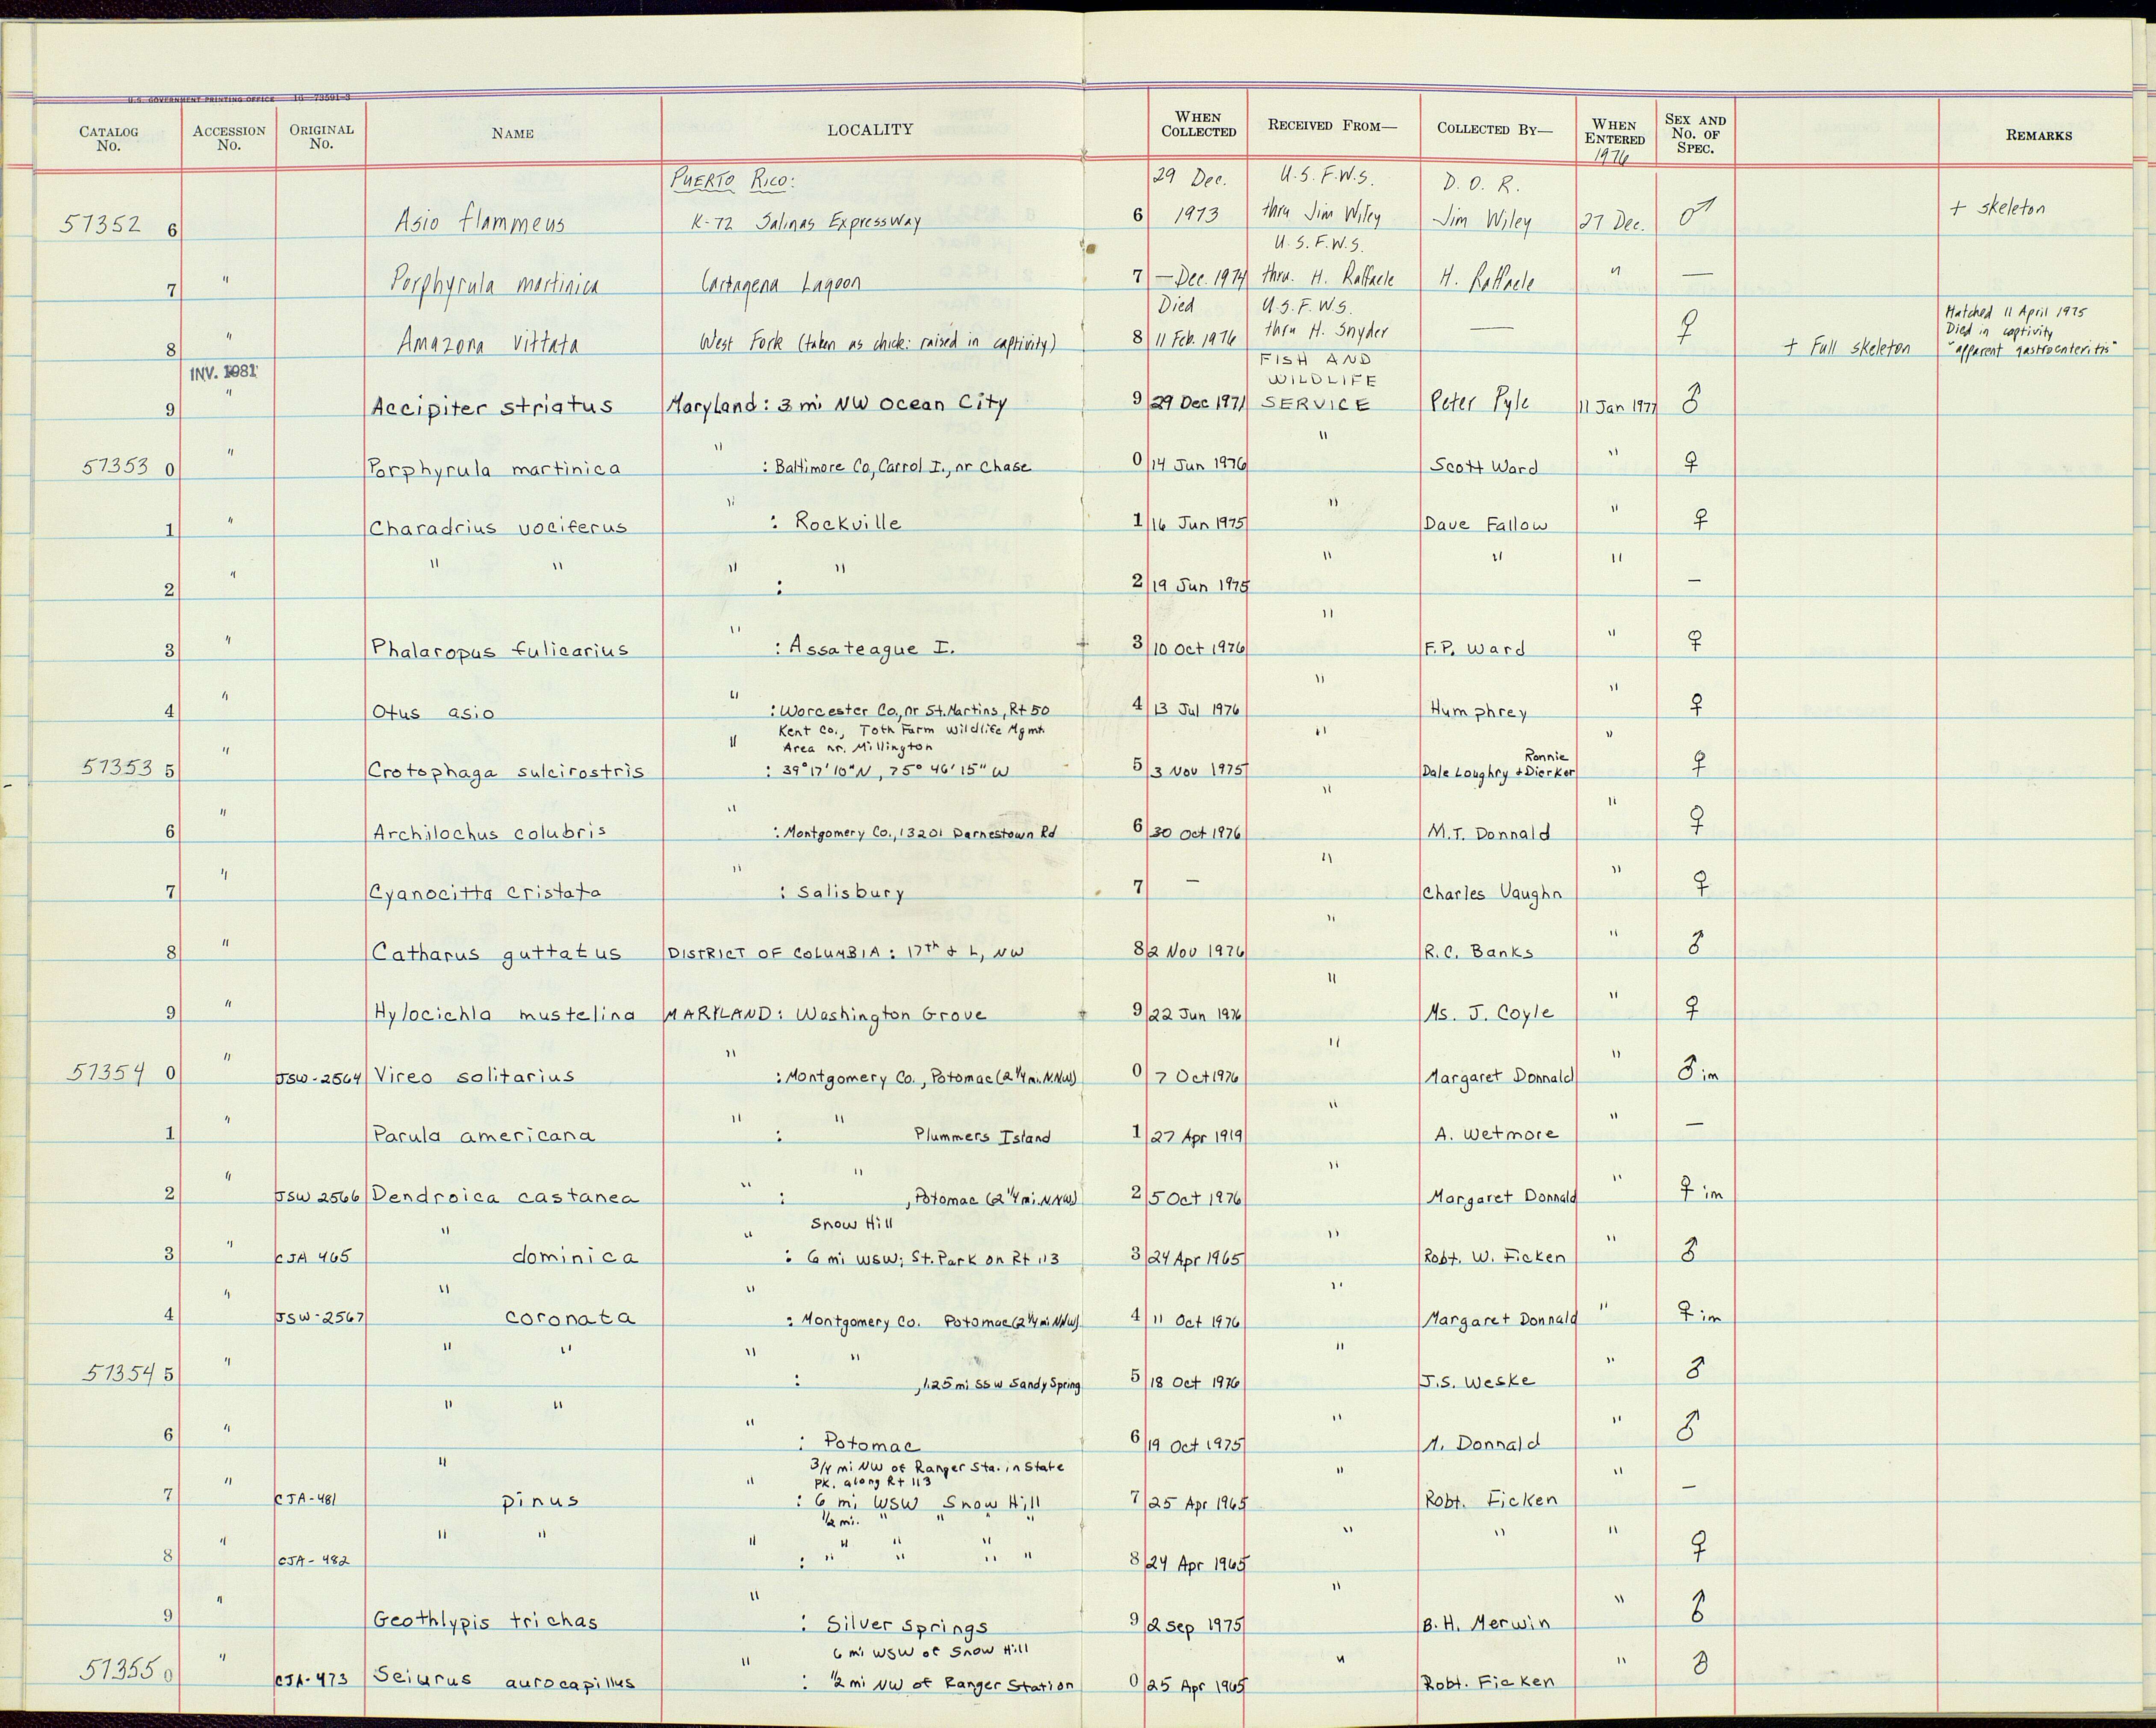 U.S. GOVERNMENT PRINTING OFFICE 16—73591-3
CATALOG No. ACCESSION No. ORIGINAL No. NAME LOCALITY WHEN COLLECTED RECEIVED FROM— COLLECTED BY— WHEN ENTERED 1976 SEX AND No. OF SPEC. REMARKS
PUERTO RICO: 29 Dec. U.S.F.W.S. D.O.R.
57352 6 Asio flammeus K-72 Salinas Expressway 6 1973 thru Jim Wiley Jim Wiley 27 Dec. ♂ + skeleton
U.S.F.W.S.
7 " Porphyrula martinica Cartagena Lagoon 7 — Dec. 1974 thru. H. Raffaele H. Raffaele " —
Died U.S.F.W.S. Hatched 11 April 1975
8 " Amazona vittata West Fork (taken as chick: raised in captivity) 8 11 Feb. 1976 thru H. Snyder — ♀ + Full skeleton Died in captivity
"apparent gastroenteritis"
INV. 1981 FISH AND
WILDLIFE
9 " Accipiter striatus Maryland: 3 mi NW Ocean City 9 29 Dec 1971 SERVICE Peter Pyle 11 Jan 1977 ♂
57353 0 " Porphyrula martinica " : Baltimore Co, Carrol I., nr Chase 0 14 Jun 1976 " Scott Ward " ♀
1 " Charadrius vociferus " : Rockville 1 16 Jun 1975 " Dave Fallow " ♀
2 " " " " : " 2 19 Jun 1975 " " " —
3 " Phalaropus fulicarius " : Assateague I. 3 10 Oct 1976 " F.P. Ward " ♀
4 " Otus asio " : Worcester Co, nr St. Martins, Rt 50 4 13 Jul 1976 " Humphrey " ♀
Kent Co., Toth Farm Wildlife Mgmt.
Area nr. Millington Ronnie
57353 5 " Crotophaga sulcirostris " : 39°17'10"N, 75°46'15"W 5 3 Nov 1975 " Dale Loughry + Dierker " ♀
6 " Archilochus colubris " : Montgomery Co., 13201 Darnestown Rd 6 30 Oct 1976 " M.T. Donnald " ♀
7 " Cyanocitta cristata " : Salisbury 7 — " Charles Vaughn " ♀
8 " Catharus guttatus DISTRICT OF COLUMBIA: 17th & L, NW 8 2 Nov 1976 " R.C. Banks " ♂
9 " Hylocichla mustelina MARYLAND: Washington Grove 9 22 Jun 1976 " Ms. J. Coyle " ♀
57354 0 " JSW-2564 Vireo solitarius " : Montgomery Co., Potomac (2 1/4 mi. NNW) 0 7 Oct 1976 " Margaret Donnald " ♂ im
1 " Parula americana " : " Plummers Island 1 27 Apr 1919 " A. Wetmore " —
2 " JSW 2566 Dendroica castanea " : " , Potomac (2 1/4 mi. NNW) 2 5 Oct 1976 " Margaret Donnald " ♀ im
Snow Hill
3 " CJA 465 " dominica " : 6 mi WSW; St. Park on Rt 113 3 24 Apr 1965 " Robt. W. Ficken " ♂
4 " JSW-2567 " coronata " : Montgomery Co. Potomac (2 1/4 mi NNW) 4 11 Oct 1976 " Margaret Donnald " ♀ im
57354 5 " " " " : " , 1.25 mi SSW Sandy Spring 5 18 Oct 1976 " J.S. Weske " ♂
6 " " " " : Potomac 6 19 Oct 1975 " M. Donnald " ♂
3/4 mi NW of Ranger Sta. in State
Pk. along Rt 113
7 " CJA-481 " pinus " : 6 mi WSW Snow Hill 7 25 Apr 1965 " Robt. Ficken " —
1/2 mi. " " "
" " "
8 " CJA-482 " " " : " " " " 8 24 Apr 1965 " " " ♀
9 " Geothlypis trichas " : Silver Springs 9 2 Sep 1975 " B.H. Merwin " ♂
6 mi WSW of Snow Hill
57355 0 " CJA-473 Seiurus aurocapillus " : 1/2 mi NW of Ranger Station 0 25 Apr 1965 " Robt. Ficken " ♂